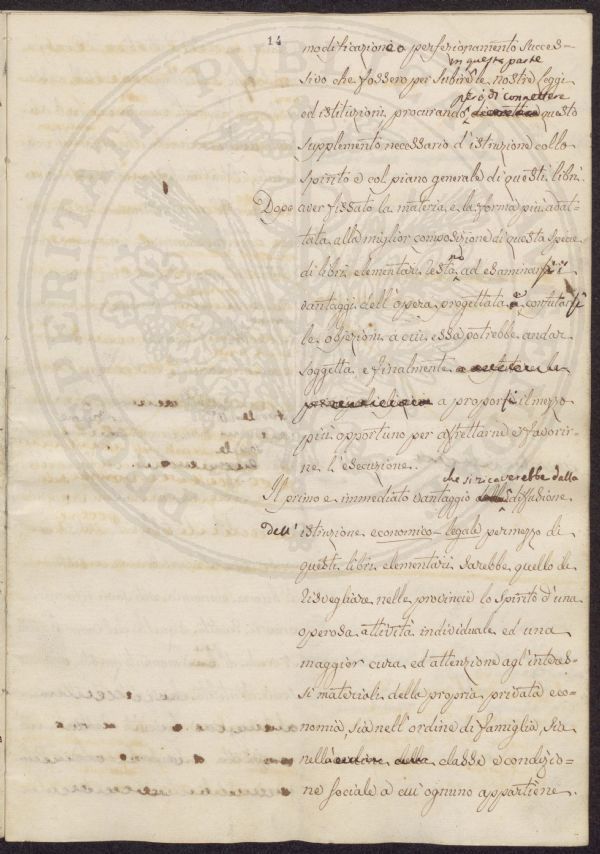 14
modificazione o perfezionamento succes-
in questa parte
sivo che fossero per subire le nostre leggi
però di connettere
ed istituzioni, procurando questo
supplemento necessario d'istruzione collo
spirito e col piano generale di questi libri.
Dopo aver fissato la materia e la forma più adat-
tata alla miglior composizione di questa specie
di libri elementari resta ad esaminarsi i
vantaggi dell'opera progettata e confutarsi
le obiezioni a cui essa potrebbe andar
soggetta, e finalmente
a proporsi il mezzo
più opportuno per affrettarne e favorir-
ne l'esecuzione.
che si ricaverebbe dalla
Il primo e immediato vantaggio diffusione
dell' istruzione economico-legale per mezzo di
questi libri elementari sarebbe quello di
risvegliare nelle provincie lo spirito d'una
operosa attività individuale ed una
maggior cura ed attenzione agl'interes-
si materiali della propria privata eco-
nomia, sia nell'ordine di famiglia, sia
nella classe e condizio-
ne sociale a cui ognuno appartiene.